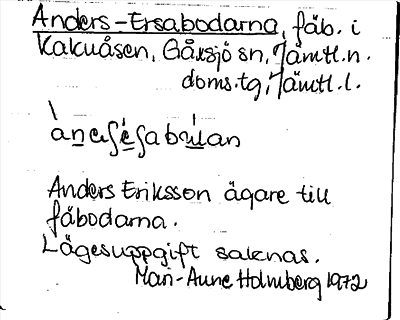 Anders-Ersabodarna, fäb. i
Kakuåsen, Gåxsjö sn, Jämtl.n.
doms.tg, Jämtl.l.
Anders Eriksson ägare till
fäbodarna.
Lägesuppgift saknas.
Mari-Anne Holmberg 1972